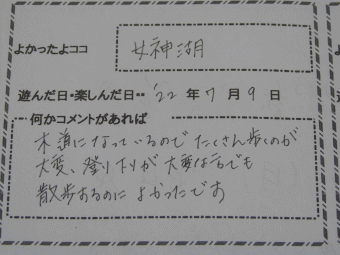 よかったよココ 女神湖
遊んだ日・楽しんだ日・・ '22 年 7 月 9 日
何かコメントがあれば
木道になっているのでたくさん歩くのが
大変、登り下りが大変な方でも
散歩するのによかったです